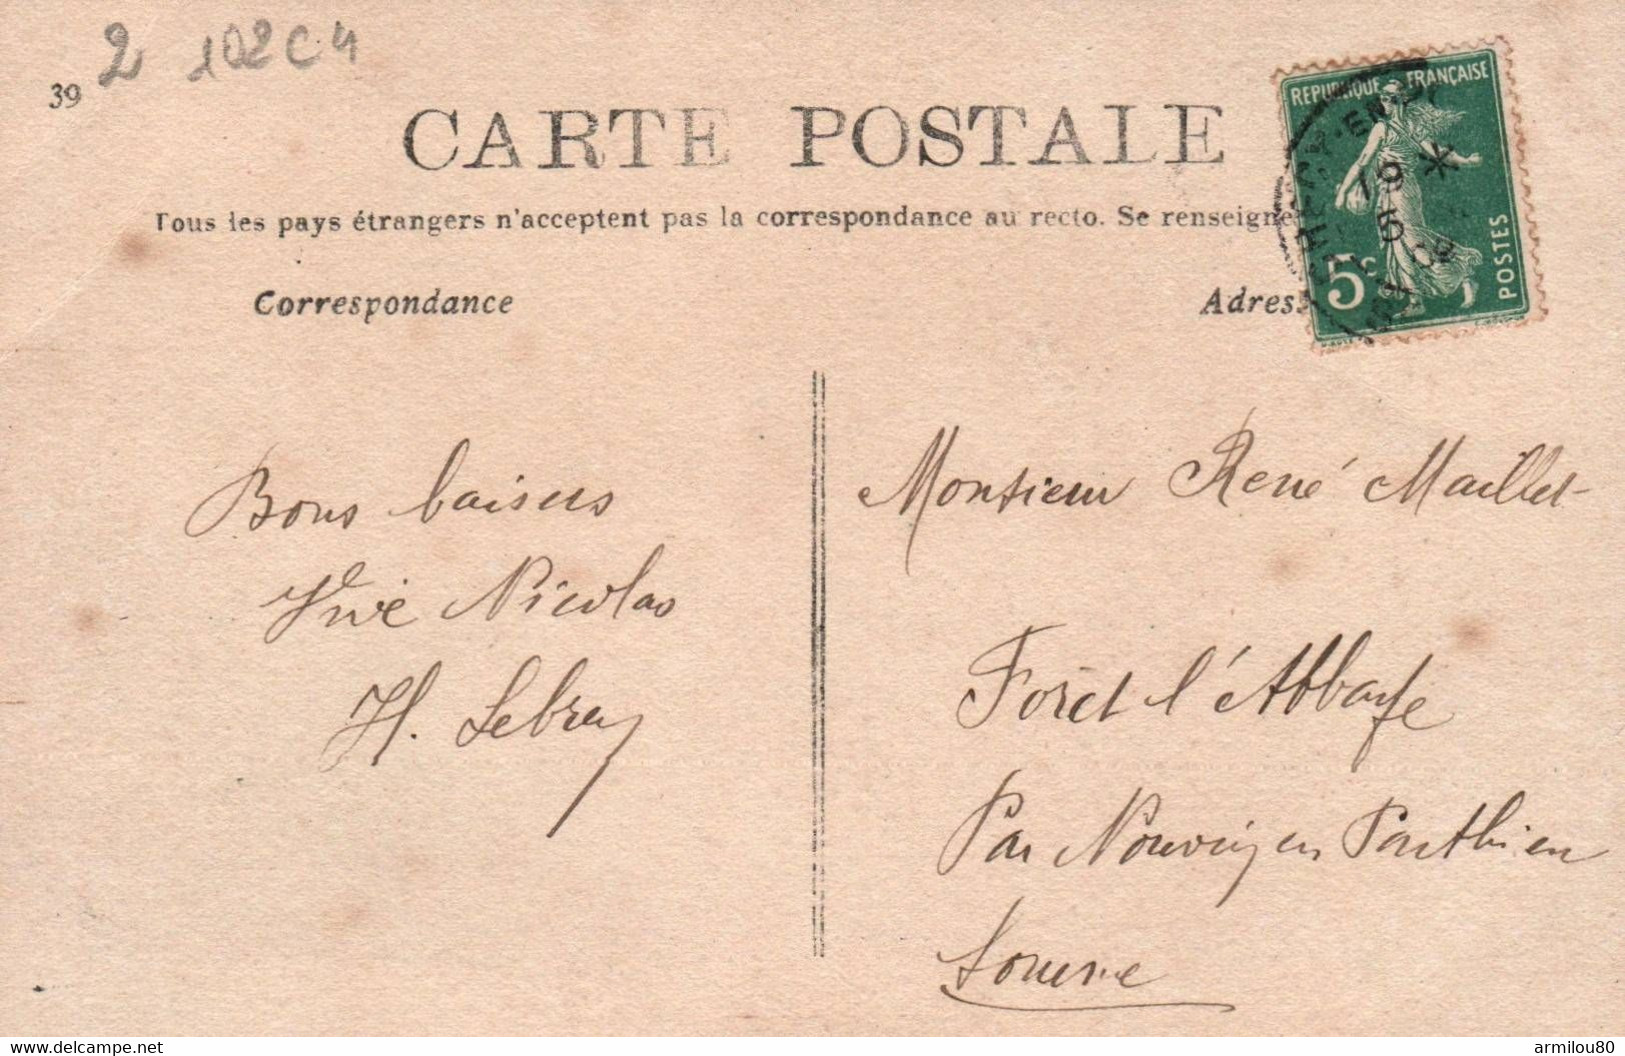 2 102C4
39
CARTE POSTALE
Tous les pays étrangers n'acceptent pas la correspondance au recto. Se renseigne
Correspondance
Adres
REPUBLIQUE FRANÇAISE
19
5
09
5c
POSTES
Bons baisers
Vive Nicolas
H. Lebray
Monsieur René Maillet
Forêt l'Abbaye
Par Nouvion en Ponthieu
Somme
delcampe.net
armilou80